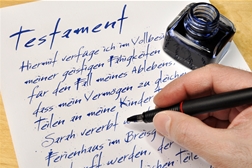 Testament
Hiermit verfüge ich im Vollbesitz
meiner geistigen Fähigkeiten
für den Fall meines Ablebens,
dass mein Vermögen zu gleichen
Teilen an meine Kinder
Sarah vererbt
Ferienhaus im
werden, der